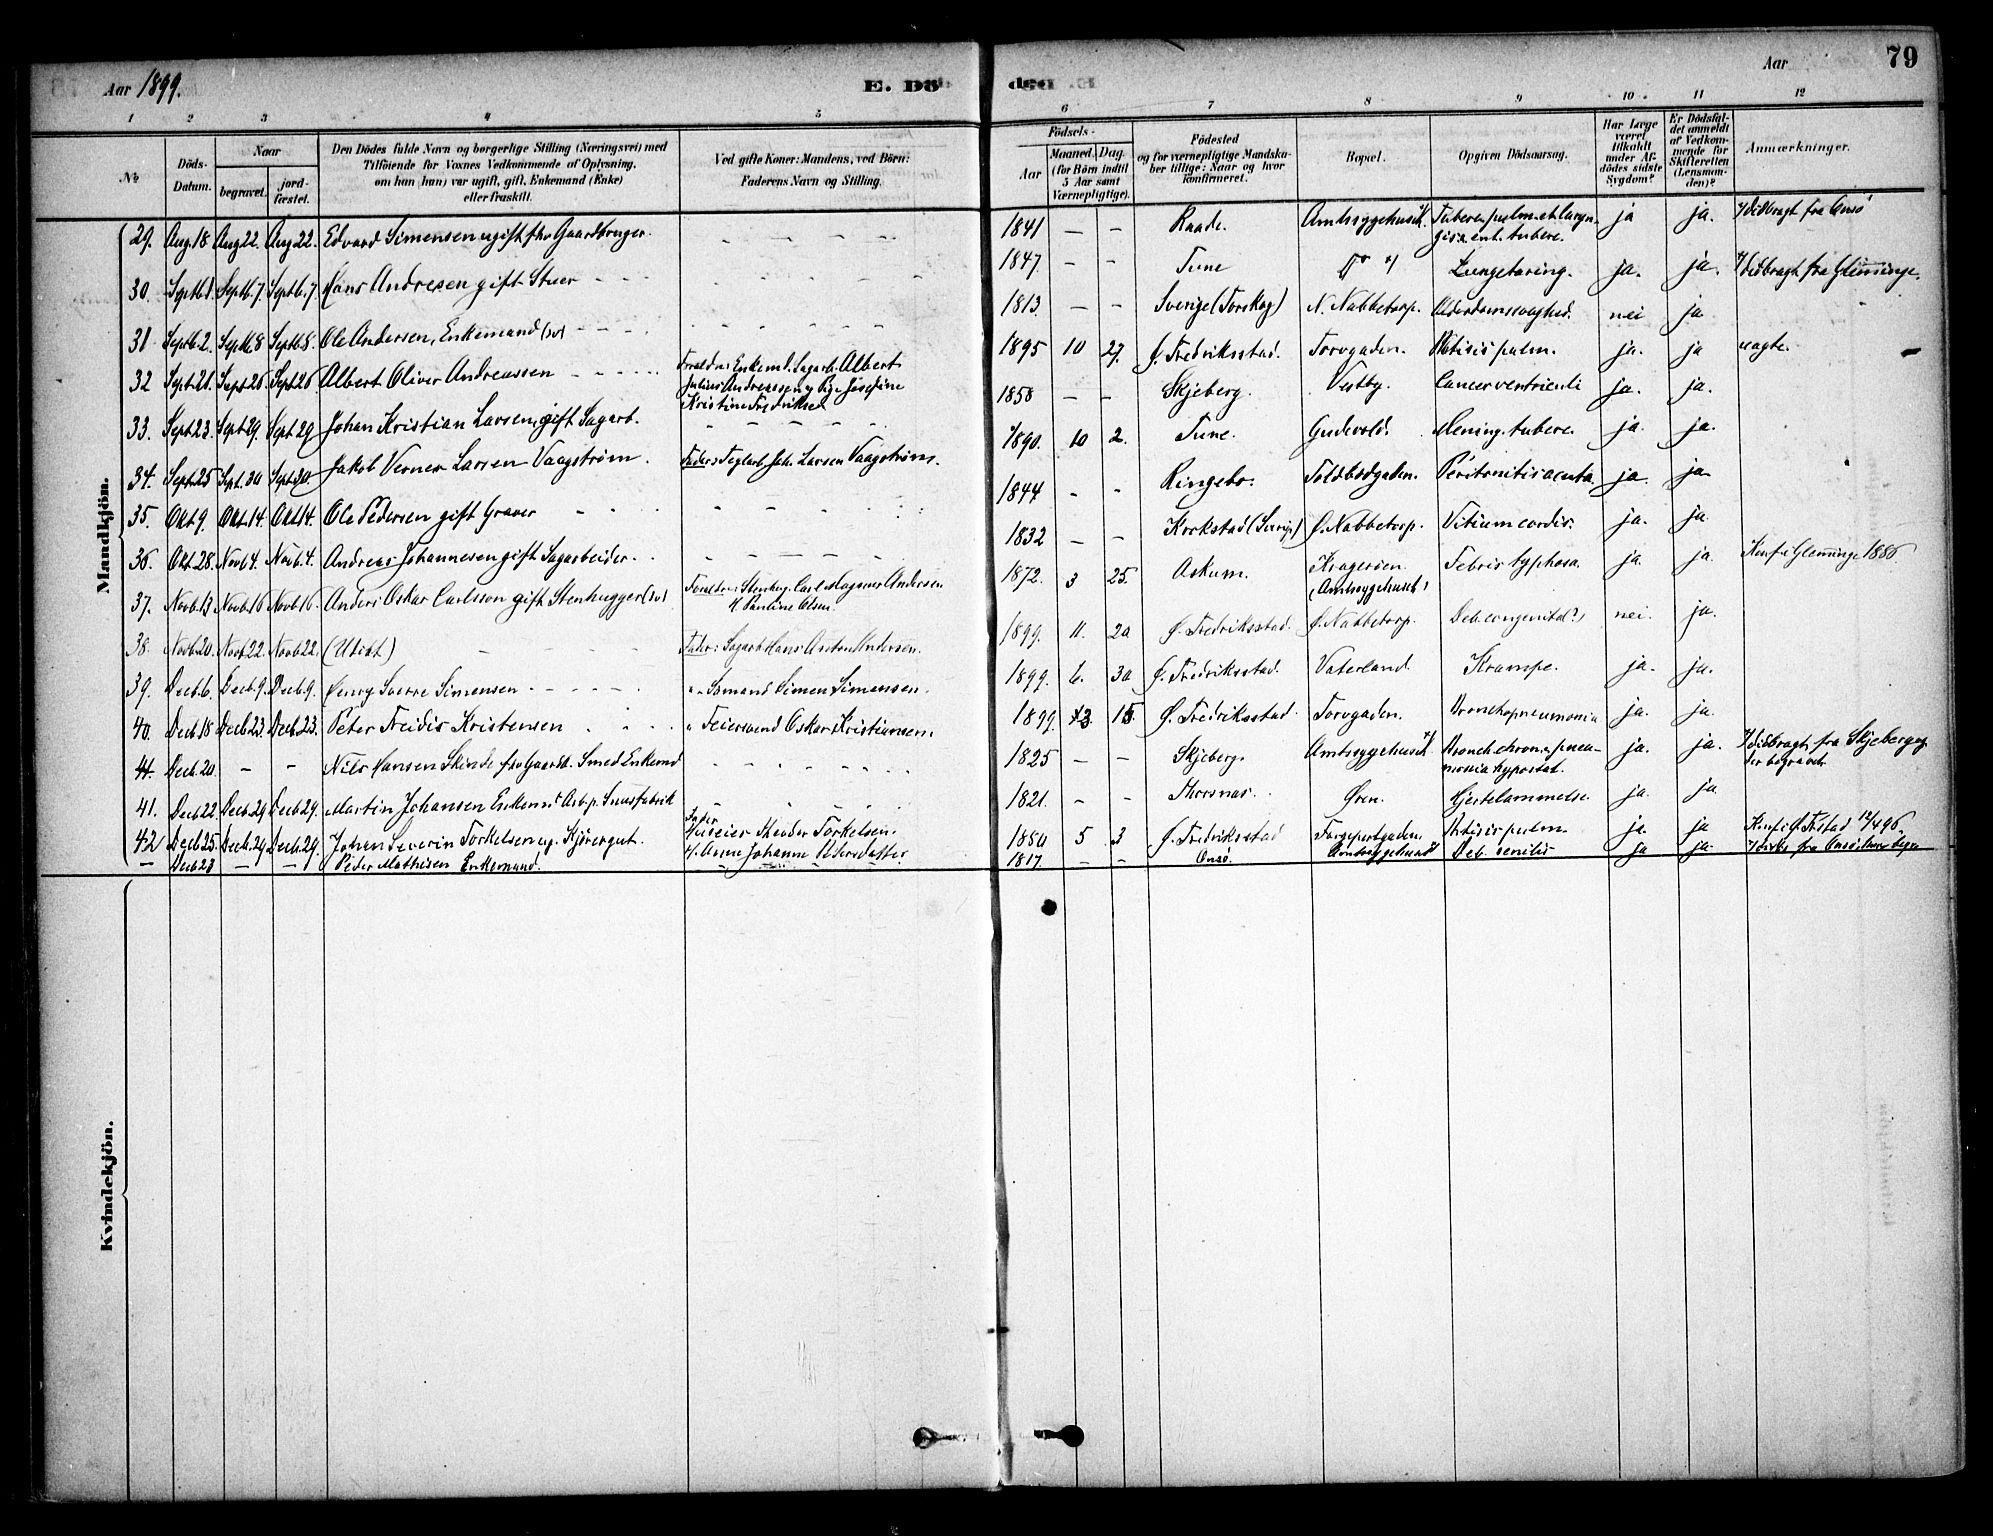 Aar 1899. E. Dö dsd Aar 79
1 2 3 4 5 6 7 8 9 10 11 12
No Döds-Datum. Naar begravet. jordfæstet. Den Dödes fulde Navn og borgerlige Stilling (Næringsvei) med Tilföiende for Voxnes Vedkommende af Oplysning, om han (hun) var ugift, gift, Enkemand (Enke) eller fraskilt. Ved gifte Koner: Mandens, ved Börn: Faderens Navn og Stilling. Födsels- Aar Maaned. Dag. (for Börn indtil 5 Aar samt Værnepligtige). Födested og for værnepligtige Mandskaber tillige: Naar og hvor konfirmeret. Bopæl. Opgiven Dödsaarsag. Har Læge været tilkaldt under Afdödes sidste Sygdom? Er Dödsfaldet anmeldt af Vedkommende for Skifteretten (Lensmanden)? Anmærkninger.
Mandkjön.
29. Aug. 18 Aug 22. Aug 22. Edvard Simensen ugift fhv Gaardbruger. 1841 Raade. Amtssygehuset Tuberc. pulm. et laryngis & ent. tuberc. ja ja. Udbragt fra Onsö
30. Septb. 1. Septb. 7 Septb. 7 Hans Andresen gift Stuer 1847. Tune Do Lungetæring. ja. ja. Udbragt fra Glemminge.
31 Septb. 2. Septb. 8 Septb. 8. Ole Andersen, Enkemand (sv) 1813. Sverige (Torskog) N. Nabbetorp. Alderdomssvaghed. nei ja
32 Sept. 21. Sept 26 Sept 26 Albert Oliver Andreassen Forældre: Enkem. Sagarb. Albert Julius Andreassen og Pge Josefine Kristine Fredriksd 1895 10 27. Ø. Fredriksstad. Torvgaden. Phtisis pulm. ja. ja uægte.
33. Sept. 23. Sept 29. Sept 29 Johan Kristian Larsen, gift Sagarb. 1858 Skjeberg. Vestby. Cancer ventriculi ja. ja.
34. Sept. 25 Sept. 30 Sept 30. Jakob Verner Larsen Vaagström. Fader: Teglarb. Joh. Larsen Vaagström. 1890. 10 2. Tune. Gudevold. Mening. tuberc. ja. ja.
35. Okt 9. Okt. 14. Okt 14. Ole Pedersen gift Graver 1844 Ringebo. Toldbodgaden. Peritonitis acuta ja. ja.
36. Okt. 28. Novb 4. Novb. 4. Andreas Johannesen gift Sagarbeider. 1832 Krokstad (Sverige) Ø. Nabbetorp. Vitium cordis. ja. ja.
37. Novb. 13 Novb. 16 Novb. 16. Anders Oskar Carlsson gift Stenhugger (sv) Forældre: Stenhug. Carl Magnus Andersen & Pauline Olsen. 1872. 3 25. Askum. Krageröen (Amtssygehuset) Febris typhosa. ja. ja. Konf. i Glemminge 1886
38. Novb. 20. Novb. 22. Novb 22. (Udöbt) Fader: Sagarb Hans Anton Andersen. 1899. 11. 20 Ø. Fredriksstad. Ø. Nabbetorp. Deb. congenita (?) nei. ja.
39. Decb. 6. Decb. 9. Decb. 9. Henry Sverre Simensen " Sømand Simen Simensen. 1899. 6. 30 Ø. Fredriksstad. Vaterland. Krampe. ja. ja.
40. Decb. 18 Decb. 23. Decb. 23. Peter Freidis Kristensen " Feiersvend Oskar Kristiansen. 1899. 12. 15. Ø. Fredriksstad. Torvgaden. Bronchopneumonia ja. ja.
Decb. 20. Nils Hansen Skinde fhv Gaardb. Smed Enkemd 1825 Skjeberg. Amtssygehuset Bronch. chron. & pneumonia hypostat. ja. ja. Udbragt fra Skjeberg og der begravet.
41. Decb 22 Decb. 29 Decb 29. Martin Johansen Enkemd Arb. p. Snusfabrik 1821. Thorsnæs. Øren. Hjertelammelse. ja. ja.
42 Decb. 25. Decb. 29 Decb. 29. Johan Severin Torkelsen ug. Kjøregut. Fader Huseier Theodor Torkelsen & Anne Johanne Petersdatter 5 3 Ø. Fredriksstad Phtisis pulm. ja. ja
Decb 23 Peder Mathisen Enkemand. 1817. Onsö. Amtssygehuset Deb. senilis ja ja
Kvindekjön.